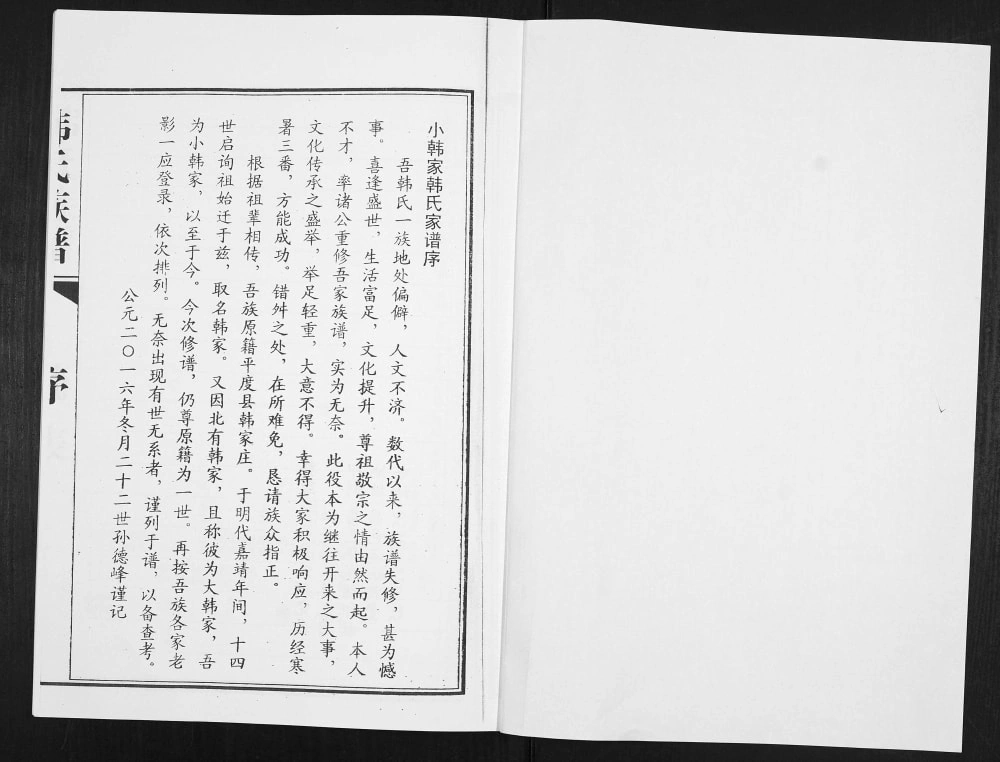 小韩家韩氏家谱序
吾韩氏一族地处偏僻，人文不济。数代以来，族谱失修，甚为憾
事。喜逢盛世，生活富足，文化提升，尊祖敬宗之情由然而起。本人
不才，率诸公重修吾家族谱，实为无奈。此役本为继往开来之大事，
文化传承之盛举，举足轻重，大意不得。幸得大家积极响应，历经寒
暑三番，方能成功。错舛之处，在所难免，恳请族众指正。
根据祖辈相传，吾族原籍平度县韩家庄。于明代嘉靖年间，十四
世启询祖始迁于兹，取名韩家。又因北有韩家，且称彼为大韩家，吾
为小韩家，以至于今。今次修谱，仍尊原籍为一世。再按吾族各家老
影一应登录，依次排列。无奈出现有世无系者，谨列于谱，以备查考。
公元二〇一六年冬月二十二世孙德峰谨记
韩氏族谱
序